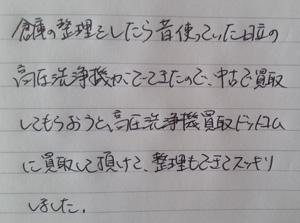 倉庫の整理をしたら昔使っていた日立の
高圧洗浄機がでてきたので、中古で買取
してもらおうと、高圧洗浄機買取ドットコム
に買取して頂けて、整理もできてスッキリ
しました。